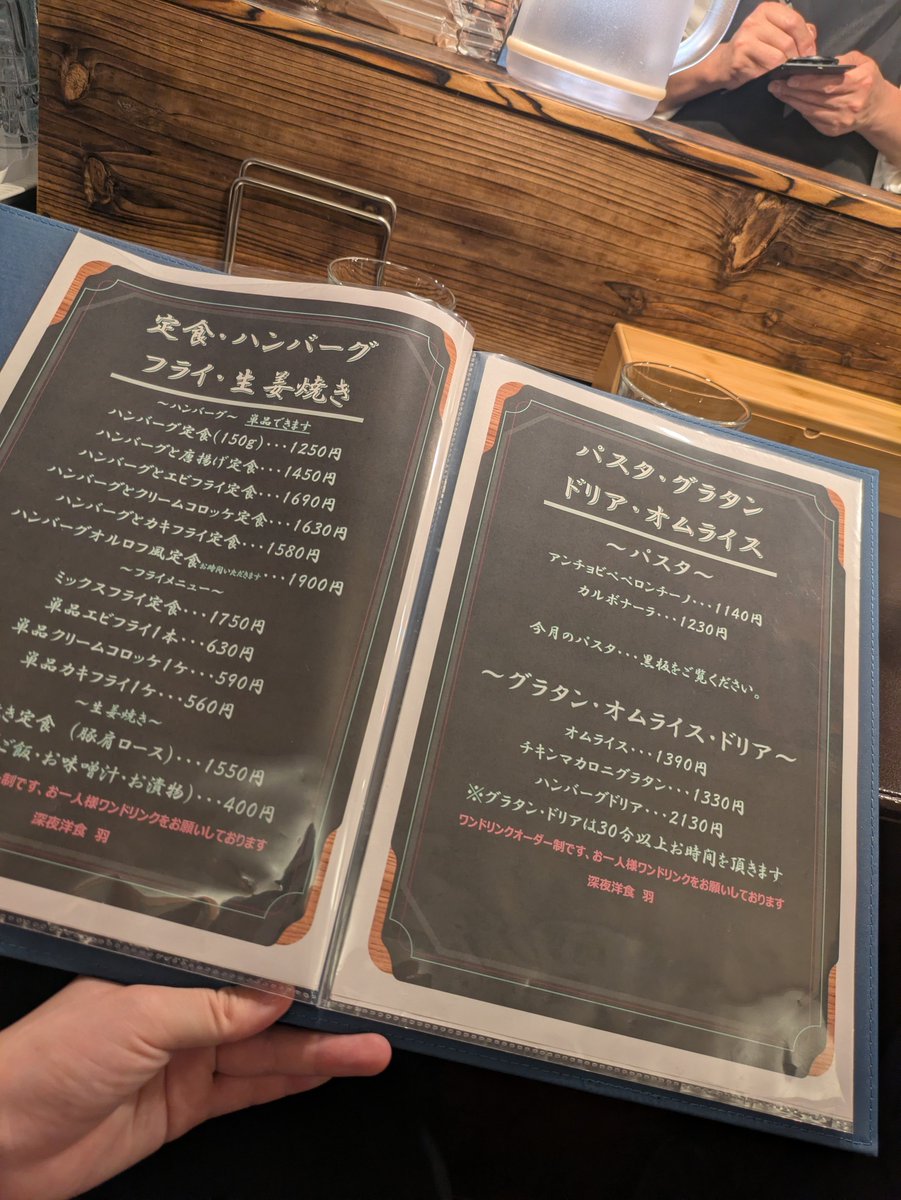 定食・ハンバーグ
フライ・生姜焼き
～ハンバーグ～ 単品できます
ハンバーグ定食(150g)・・・1250円
ハンバーグと唐揚げ定食・・・1450円
ハンバーグとエビフライ定食・・・1690円
ハンバーグとクリームコロッケ定食・・・1630円
ハンバーグとカキフライ定食・・・1580円
ハンバーグオルロフ風定食お時間いただきます・・・1900円
～フライメニュー～
ミックスフライ定食・・・1750円
単品エビフライ1本・・・630円
単品クリームコロッケ1ケ・・・590円
単品カキフライ1ケ・・・560円
～生姜焼き～
き定食 (豚肩ロース)・・・1550円
ご飯・お味噌汁・お漬物)・・・400円
制です、お一人様ワンドリンクをお願いしております
深夜洋食 羽
パスタ・グラタン
ドリア・オムライス
～パスタ～
アンチョビペペロンチーノ・・・1140円
カルボナーラ・・・1230円
今月のパスタ・・・黒板をご覧ください。
～グラタン・オムライス・ドリア～
オムライス・・・1390円
チキンマカロニグラタン・・・1330円
ハンバーグドリア・・・2130円
※グラタン・ドリアは30分以上お時間を頂きます
ワンドリンクオーダー制です、お一人様ワンドリンクをお願いしております
深夜洋食 羽